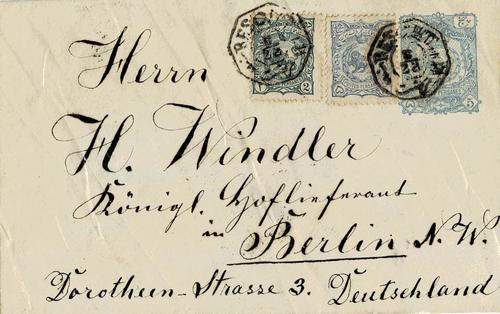 Herrn
H. Windler
Königl. Hoflieferant
in
Berlin N. W.
Dorotheen-Strasse 3. Deutschland
2
5